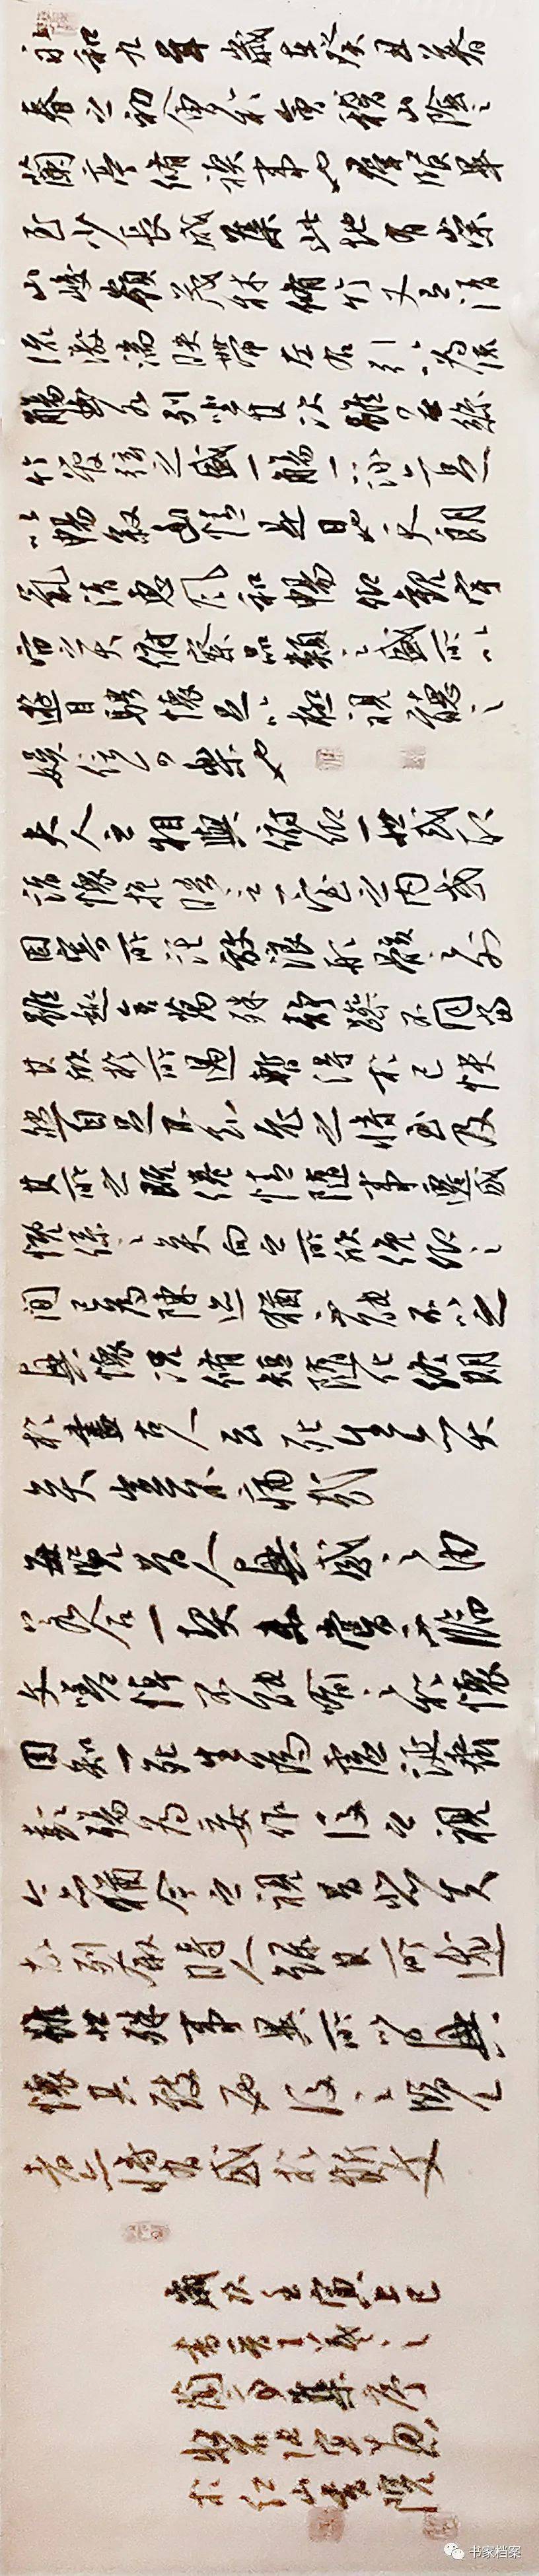 永和九年歲在癸丑暮
春之初會於會稽山陰之
蘭亭脩禊事也群賢畢
至少長咸集此地有崇
山峻嶺茂林脩竹又有清
流激湍映帶左右引以為流
觴曲水列坐其次雖無絲
竹管弦之盛一觴一詠亦足
以暢敘幽情是日也天朗
氣清惠風和暢仰觀宇
宙之大俯察品類之盛所以
遊目騁懷足以極視聽之
娛信可樂也
夫人之相與俯仰一世或取
諸懷抱晤言一室之內或
因寄所託放浪形骸之外
雖趣舍萬殊靜躁不同當
其欣於所遇暫得於己快
然自足不知老之將至及
其所之既倦情隨事遷感
慨係之矣向之所欣俛仰之
間已為陳迹猶不能不以之
興懷況脩短隨化終期
於盡古人云死生亦大
矣豈不痛哉
每覽昔人興感之由
若合一契未嘗不臨
文嗟悼不能喻之於懷
固知一死生為虛誕齊
彭殤為妄作後之視
今亦猶今之視昔悲夫
故列敘時人錄其所述
雖世殊事異所以興
懷其致一也後之覽
者亦將有感於斯文
歲次壬寅上巳
书家档案